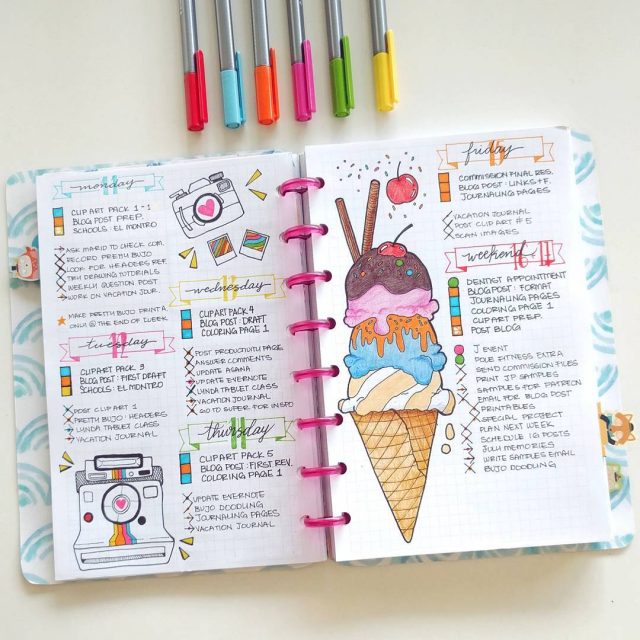 monday 11
CLIP ART PACK 1-1
BLOG POST PREP.
SCHOOLS: EL MONTRO
ASK MARID TO CHECK COM.
RECORD PRETTY BUJO
LOOK FOR HEADERS REF.
TMH DRAWING TUTORIALS
WEEKLY QUESTION POST
WORK ON VACATION JOUR.
MAKE PRETTY BUJO PRINTA
ONLY @ THE END OF WEEK
tuesday 12
CLIP ART PACK 3
BLOG POST: FIRST DRAFT
SCHOOLS: EL MONTRO
POST CLIP ART 1
PRETTY BUJO: HEADERS
LYNDA TABLET CLASS
VACATION JOURNAL
wednesday 13
CLIP ART PACK 4
BLOG POST: DRAFT
COLORING PAGE 1
POST PRODUCTIVITY PAGE
ANSWER COMMENTS
UPDATE ASANA
UPDATE EVERNOTE
LYNDA TABLET CLASS
VACATION JOURNAL
GO TO SUPER FOR INSPO
thursday
CLIP ART PACK 5
BLOG POST: FIRST REV.
COLORING PAGE 1
UPDATE EVERNOTE
BUJO DOODLING
JOURNALING PAGES
VACATION JOURNAL
friday
COMMISSION FINAL RES.
BLOG POST: LINKS + F.
JOURNALING PAGES
VACATION JOURNAL
POST CLIP ART #5
SCAN IMAGES
weekend 16-17
DENTIST APPOINTMENT
BLOG POST: FORMAT
JOURNALING PAGES
COLORING PAGE 1
CLIP ART PREP.
POST BLOG
J EVENT
POLE FITNESS EXTRA
SEND COMMISSION FILES
PRINT JP SAMPLES
SAMPLES FOR PATREON
EMAIL FOR BLOG POST
PRINTABLES
SPECIAL PROJECT
PLAN NEXT WEEK
SCHEDULE IG POSTS
JULY MEMORIES
WRITE SAMPLES EMAIL
BUJO DOODLING